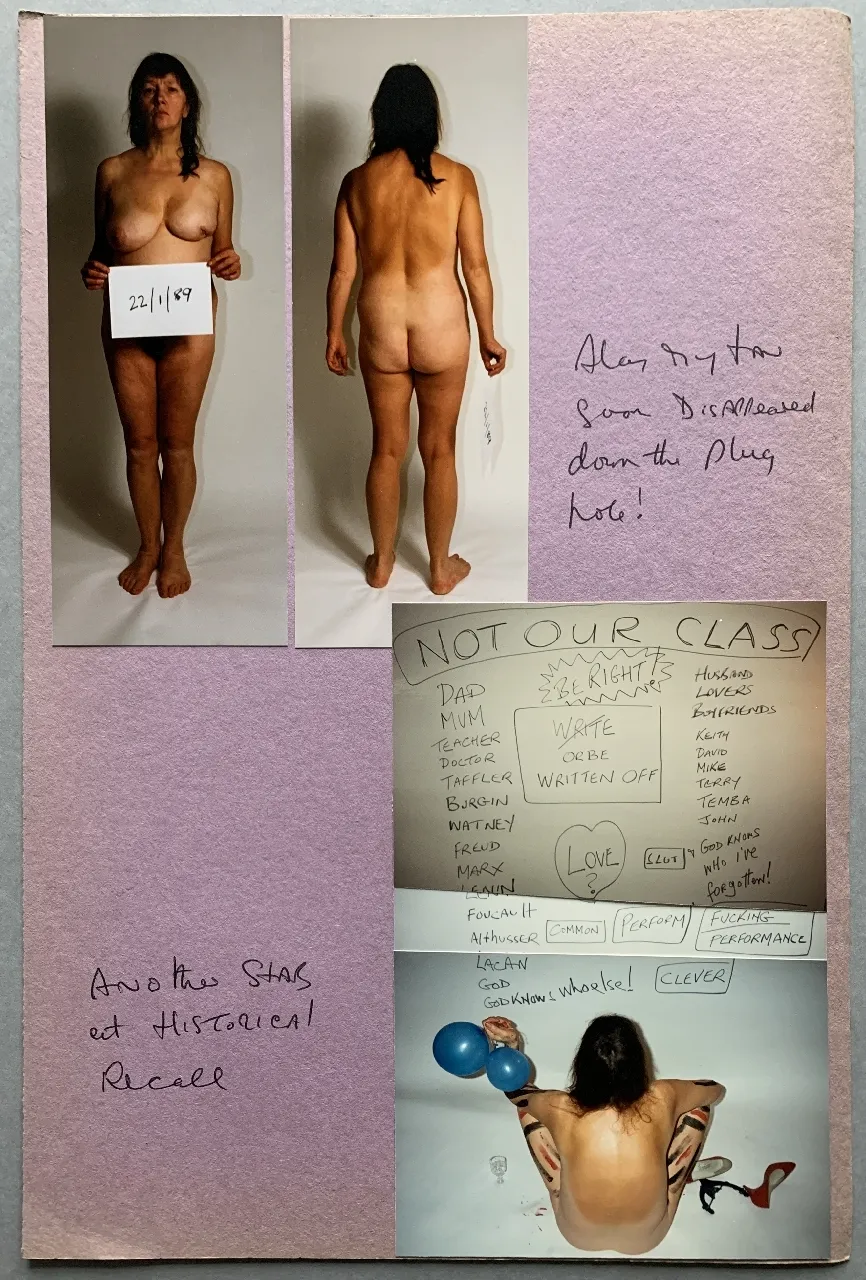 22/1/89
Alas my tan
soon DISAPPeared
down the Plug
hole!
NOT OUR CLASS
BE RIGHT!
DAD
MUM
TEACHER
DOCTOR
TAFFLER
BURGIN
WATNEY
FREUD
MARX
LENIN
FOUCAUlt
Althusser
LACAN
GOD
GOD KNOWS Whoelse!
WRITE
OR BE
WRITTEN OFF
LOVE
?
HUSBAND
LOVERS
BOYFRIENDS
KEITH
DAVID
MIKE
TERRY
TEMBA
JOHN
GOD KNOWS
WHO I'VE
forgotten!
SLUT
COMMON
PERFORM
FUCKING
PERFORMANCE
CLEVER
ANOther STAB
at HISTORICAl
Recall